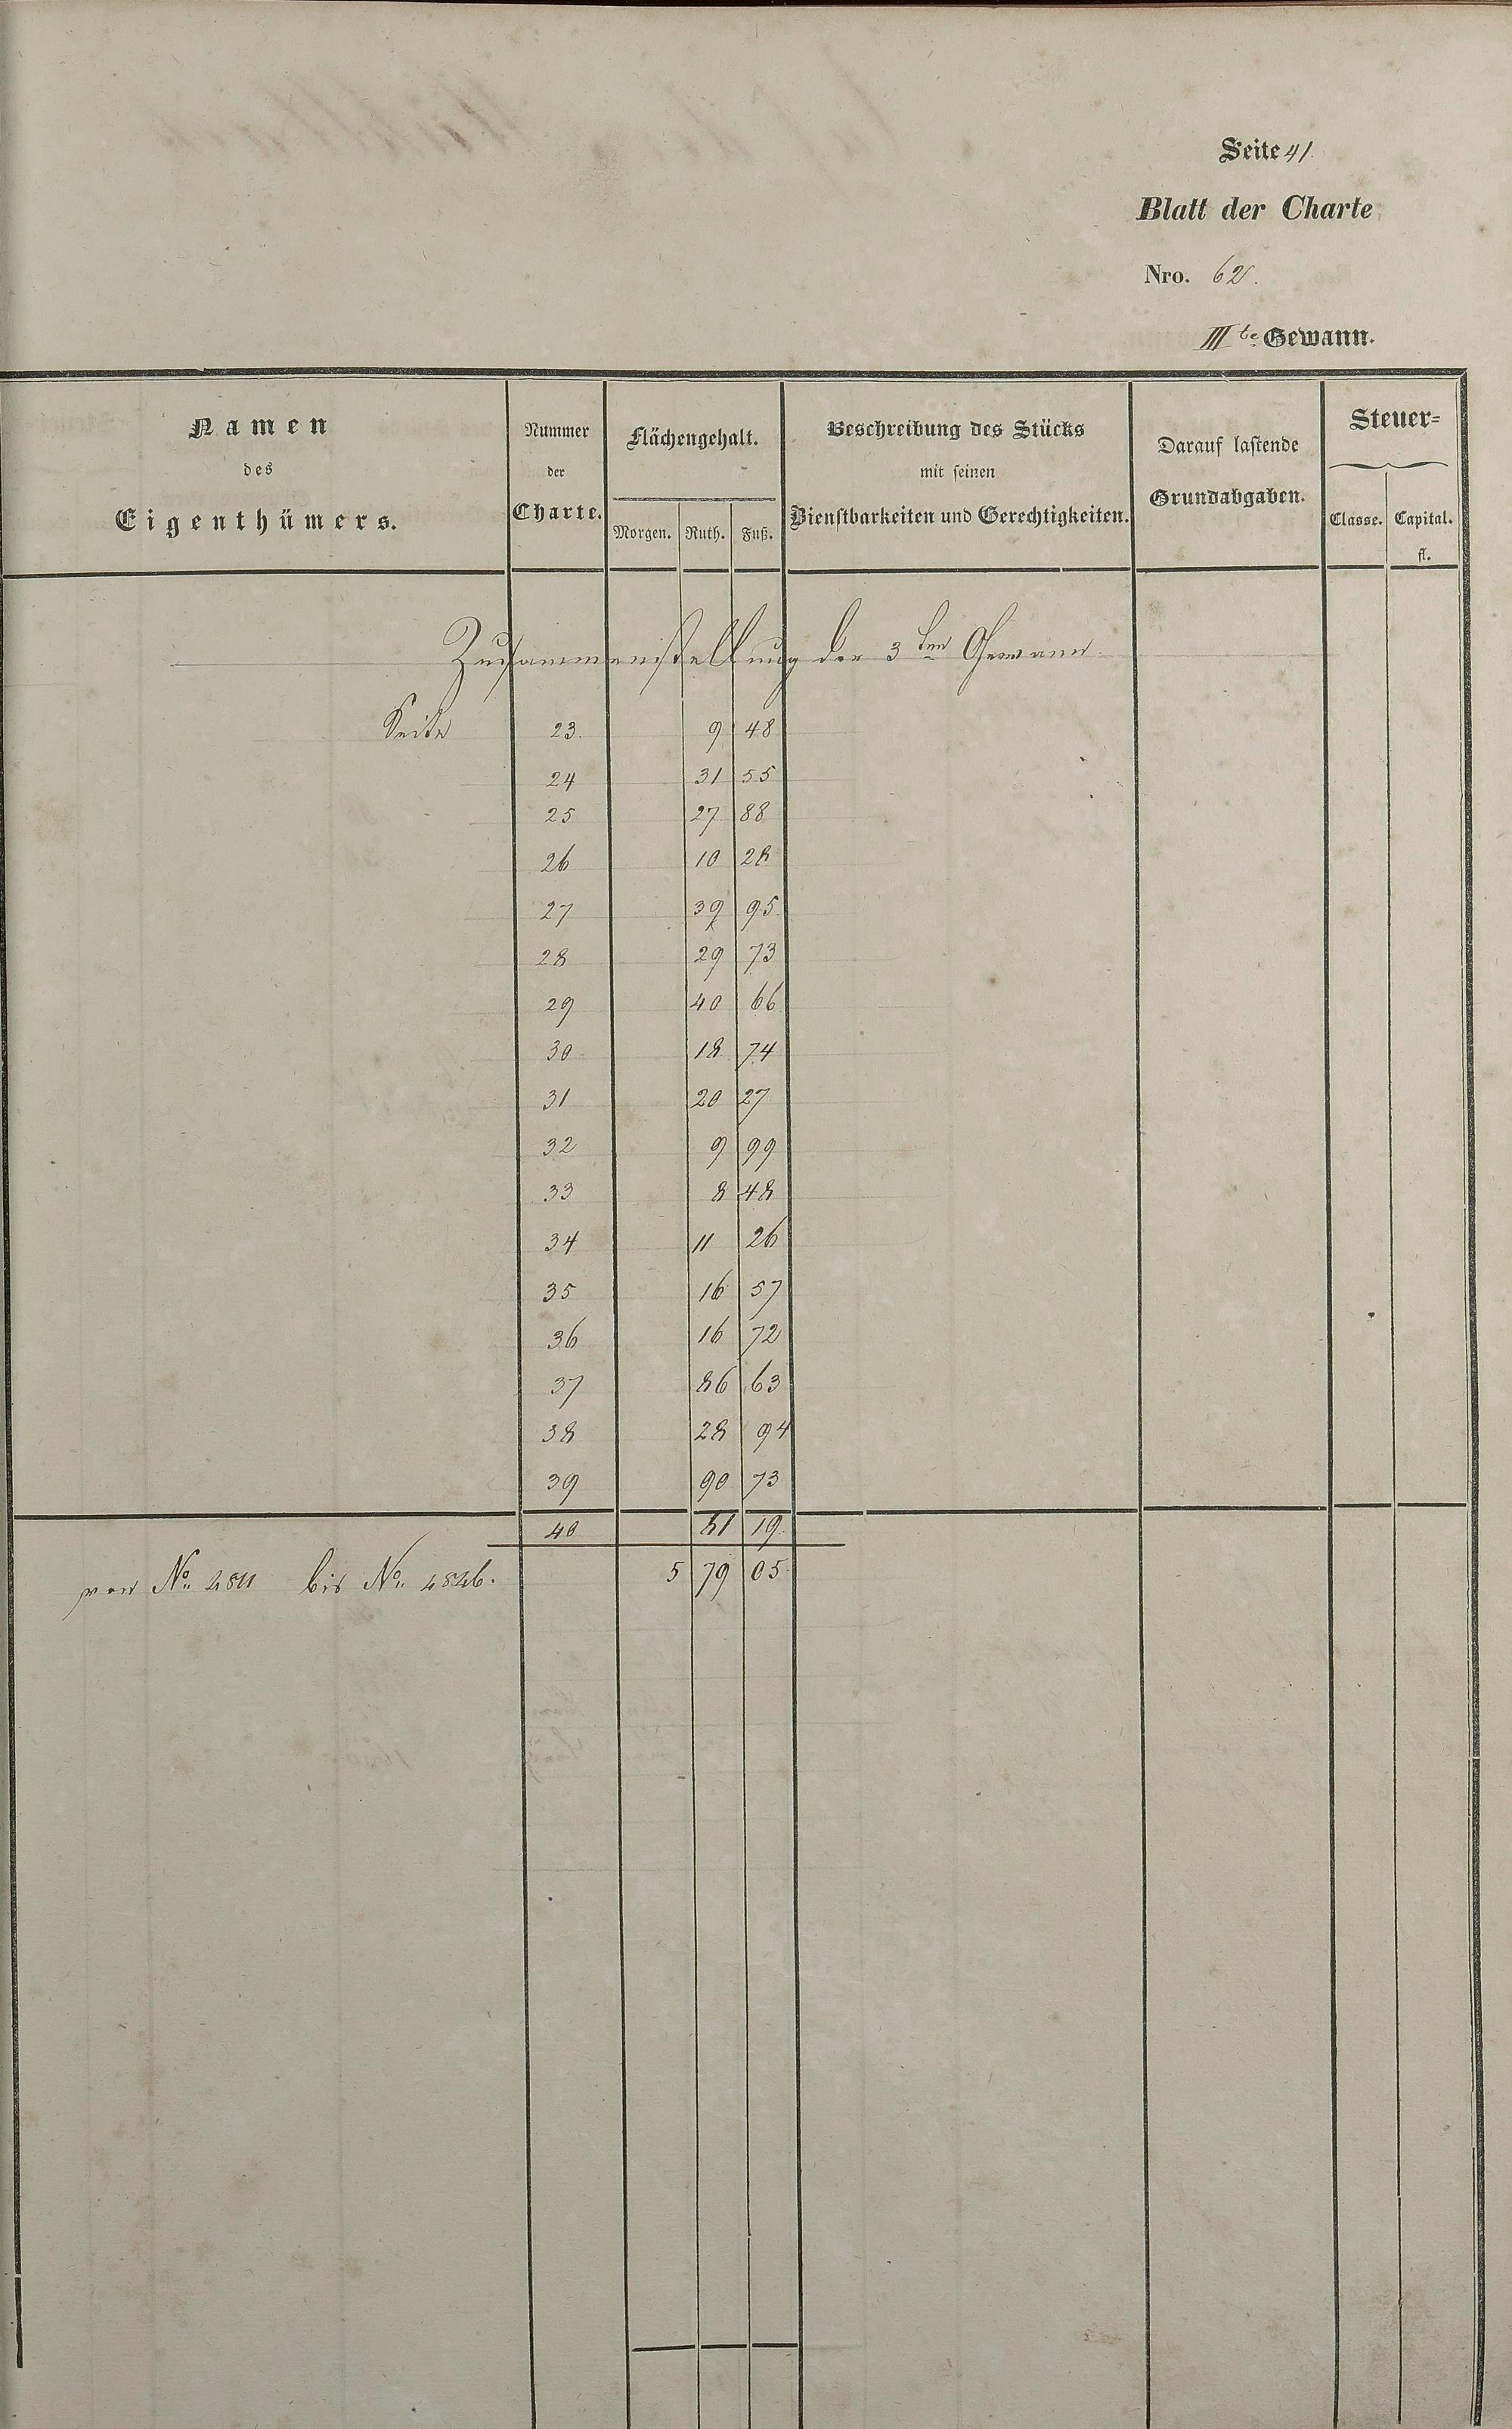 Seite 41.
Blatt der Charte
Nro. 62.
III te Gewann.
Namen
des
Eigenthümers.
Nummer
der
Charte.
Flächengehalt.
Morgen. Ruth. Fuß.
Beschreibung des Stücks
mit seinen
Dienstbarkeiten und Gerechtigkeiten.
Darauf lastende
Grundabgaben.
Steuer=
Classe. Capital.
fl.
Zusammenstellung der 3ten Gewann
Seite 23. 9 48
24 31 55
25 27 88
26 10 28
27 39 95
28 29 73
29 40 66
30 18 74
31 20 27
32 9 99
33 8 48
34 11 26
35 16 57
36 16 72
37 86 63
38 28 94
39 90 73
40 81 19
von No. 4811 bis No. 4826. 5 79 05